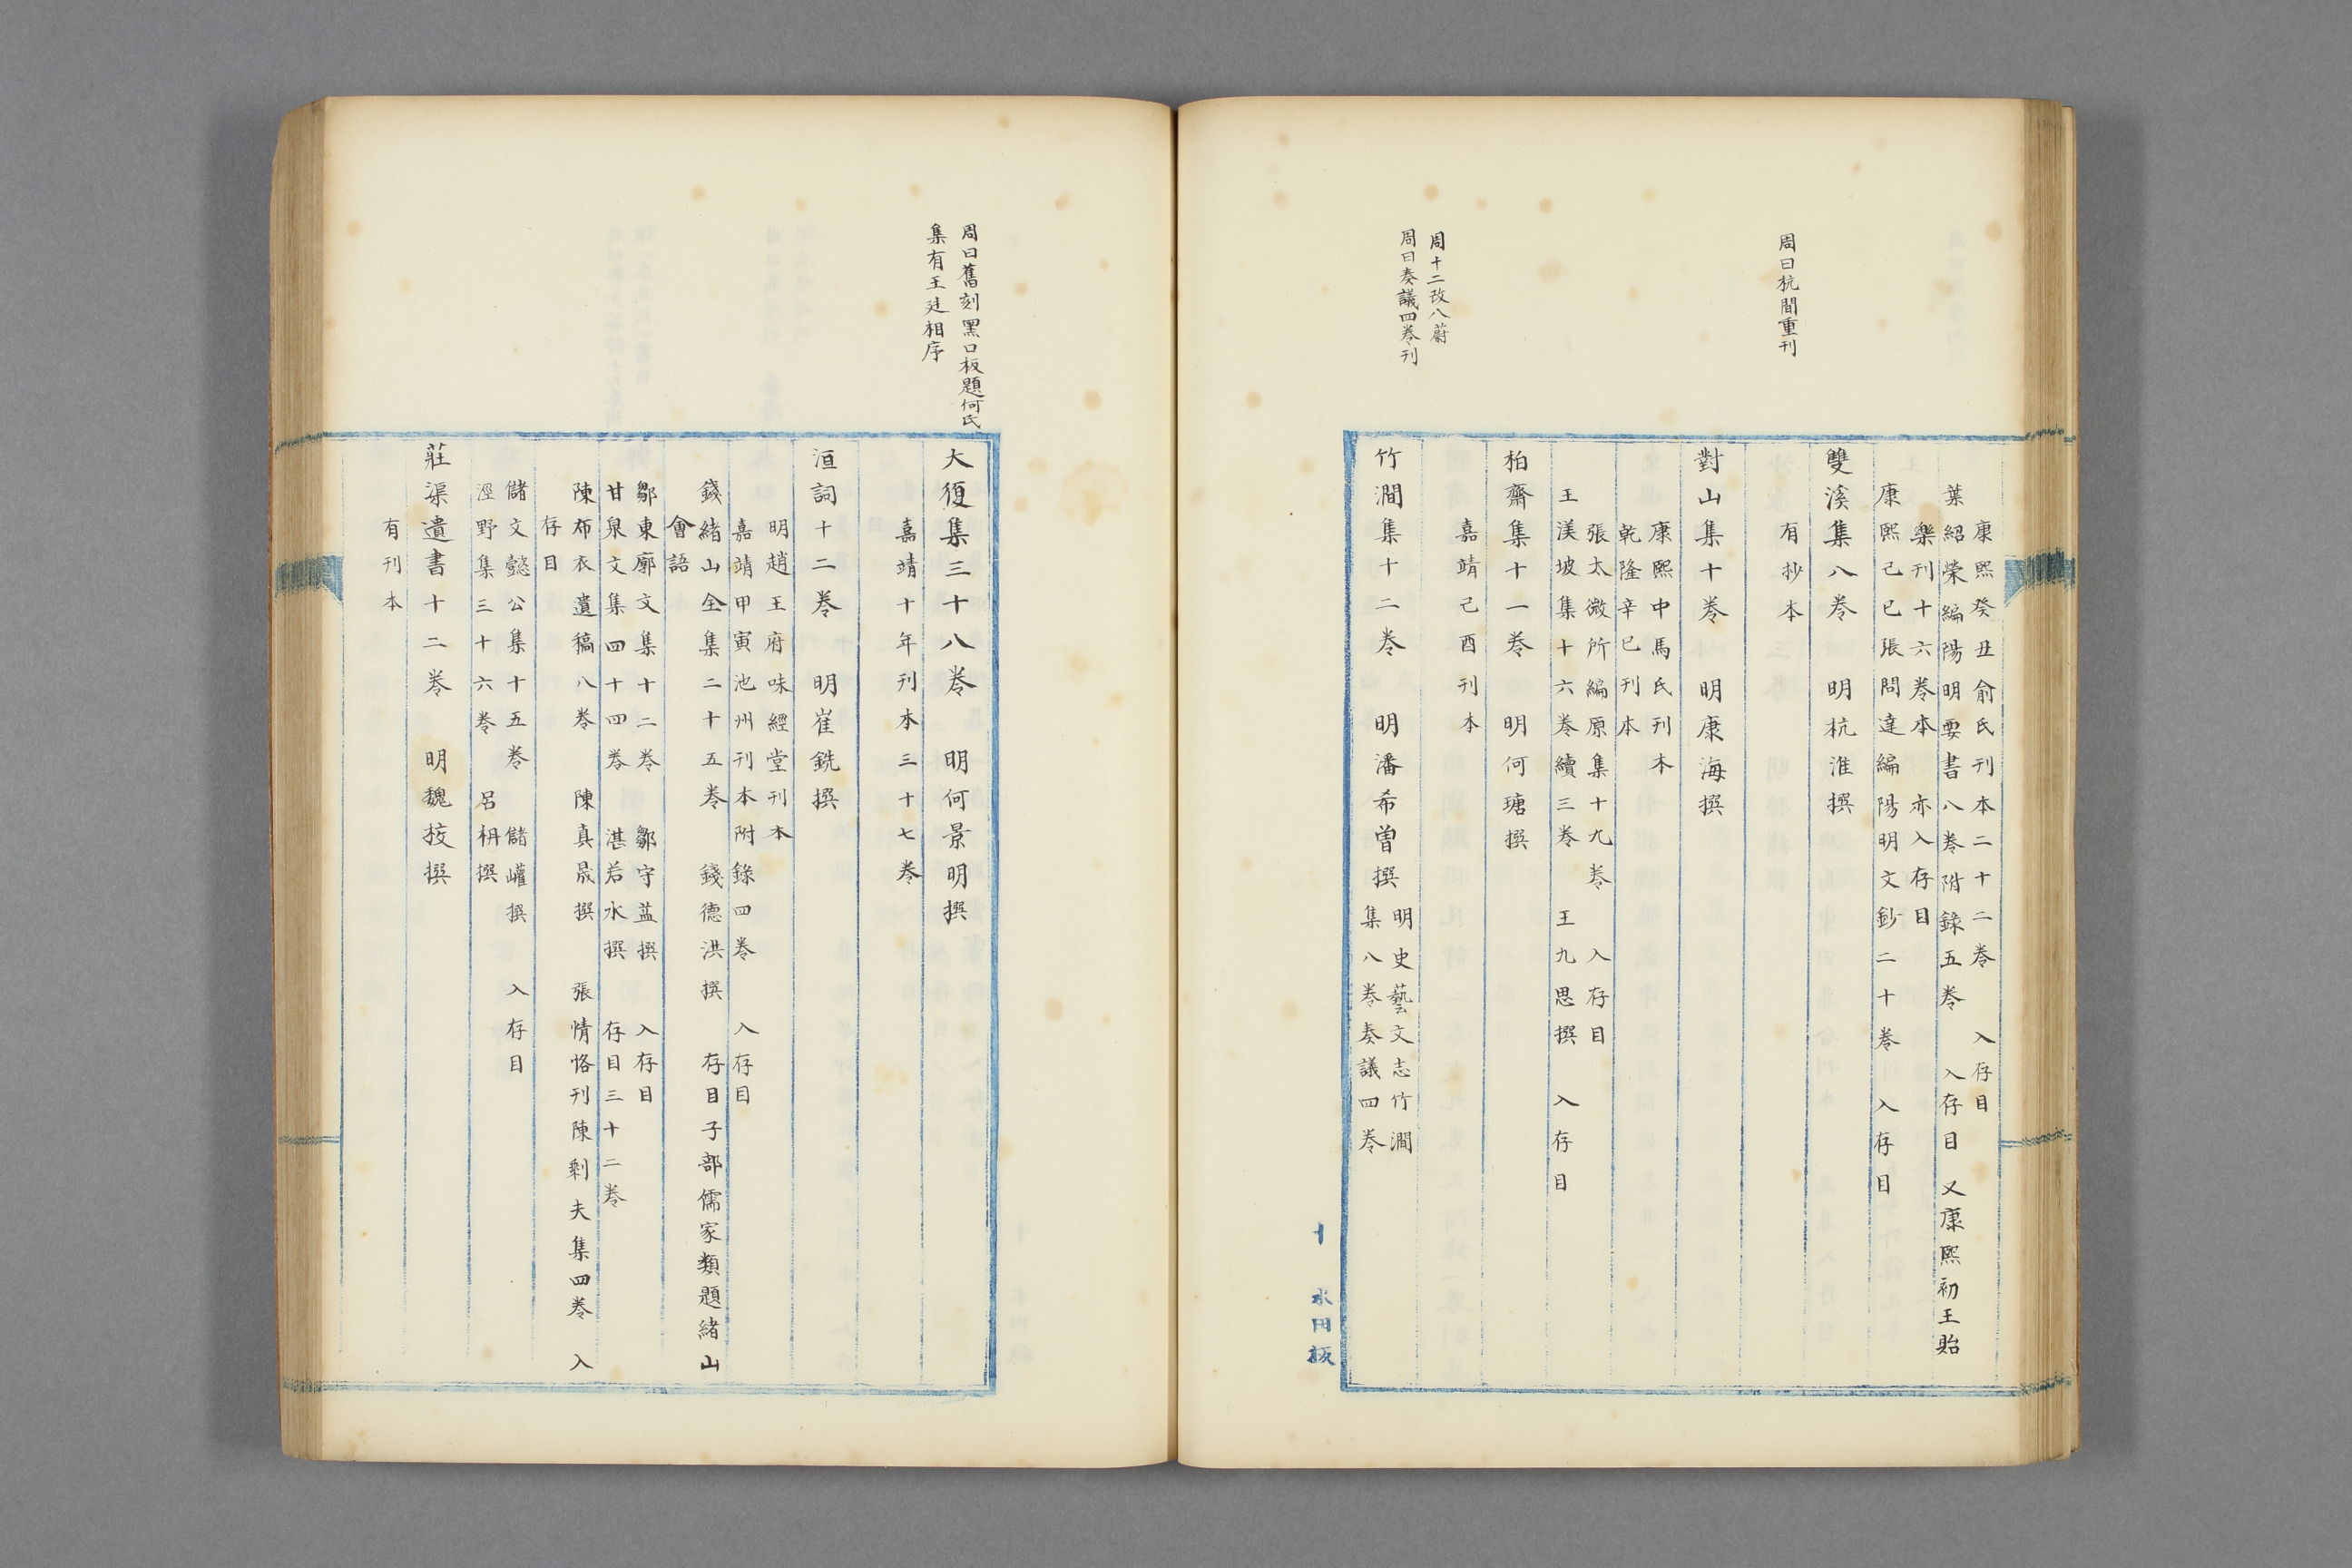 周曰杭間重刊
周十二改八蔚
周曰奏議四卷刊
康熙癸丑俞氏刊本二十二卷　入存目
葉紹榮編陽明要書八卷附錄五卷　入存目　又康熙初王貽
樂刊十六卷本　亦入存目
康熙己巳張問達編陽明文鈔二十卷　入存目
雙溪集八卷　明杭淮撰
有抄本
對山集十卷　明康海撰
康熙中馬氏刊本
乾隆辛巳刊本
張太微所編原集十九卷　入存目
王渼坡集十六卷續三卷　王九思撰　入存目
柏齋集十一卷　明何瑭撰
嘉靖己酉刊本
竹澗集十二卷　明潘希曾撰
明史藝文志竹澗
集八卷奏議四卷
十　水田板
周曰舊刻黑口板題何氏
集有王廷相序
大復集三十八卷　明何景明撰
嘉靖十年刊本三十七卷
洹詞十二卷　明崔銑撰
明趙王府味經堂刊本
嘉靖甲寅池州刊本附錄四卷　入存目
錢緒山全集二十五卷　錢德洪撰　存目子部儒家類題緒山
會語
鄒東廓文集十二卷　鄒守益撰　入存目
甘泉文集四十四卷　湛若水撰　存目三十二卷
陳布衣遺稿八卷　陳真晟撰　張情恪刊陳剩夫集四卷　入
存目
儲文懿公集十五卷　儲巏撰　入存目
涇野集三十六卷　呂枏撰
莊渠遺書十二卷　明魏校撰
有刊本